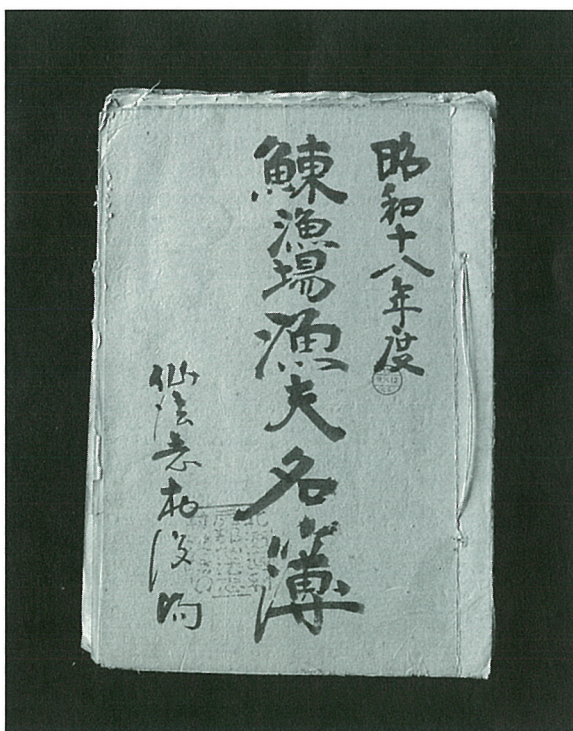 昭和十八年度
鰊漁場漁夫名簿
仙法志村役場